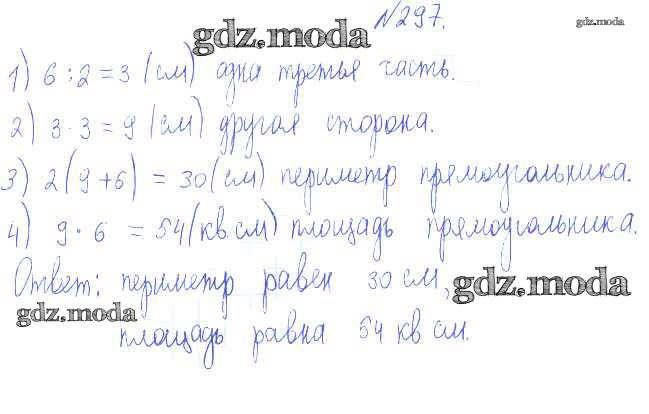 №297.
gdz.moda
gdz.moda
1) 6 : 2 = 3 (см) одна третья часть.
2) 3 · 3 = 9 (см) другая сторона.
3) 2(9+6) = 30(см) периметр прямоугольника.
4) 9 · 6 = 54(кв.см) площадь прямоугольника.
Ответ: периметр равен 30 см,
gdz.moda
gdz.moda
площадь равна 54 кв см.